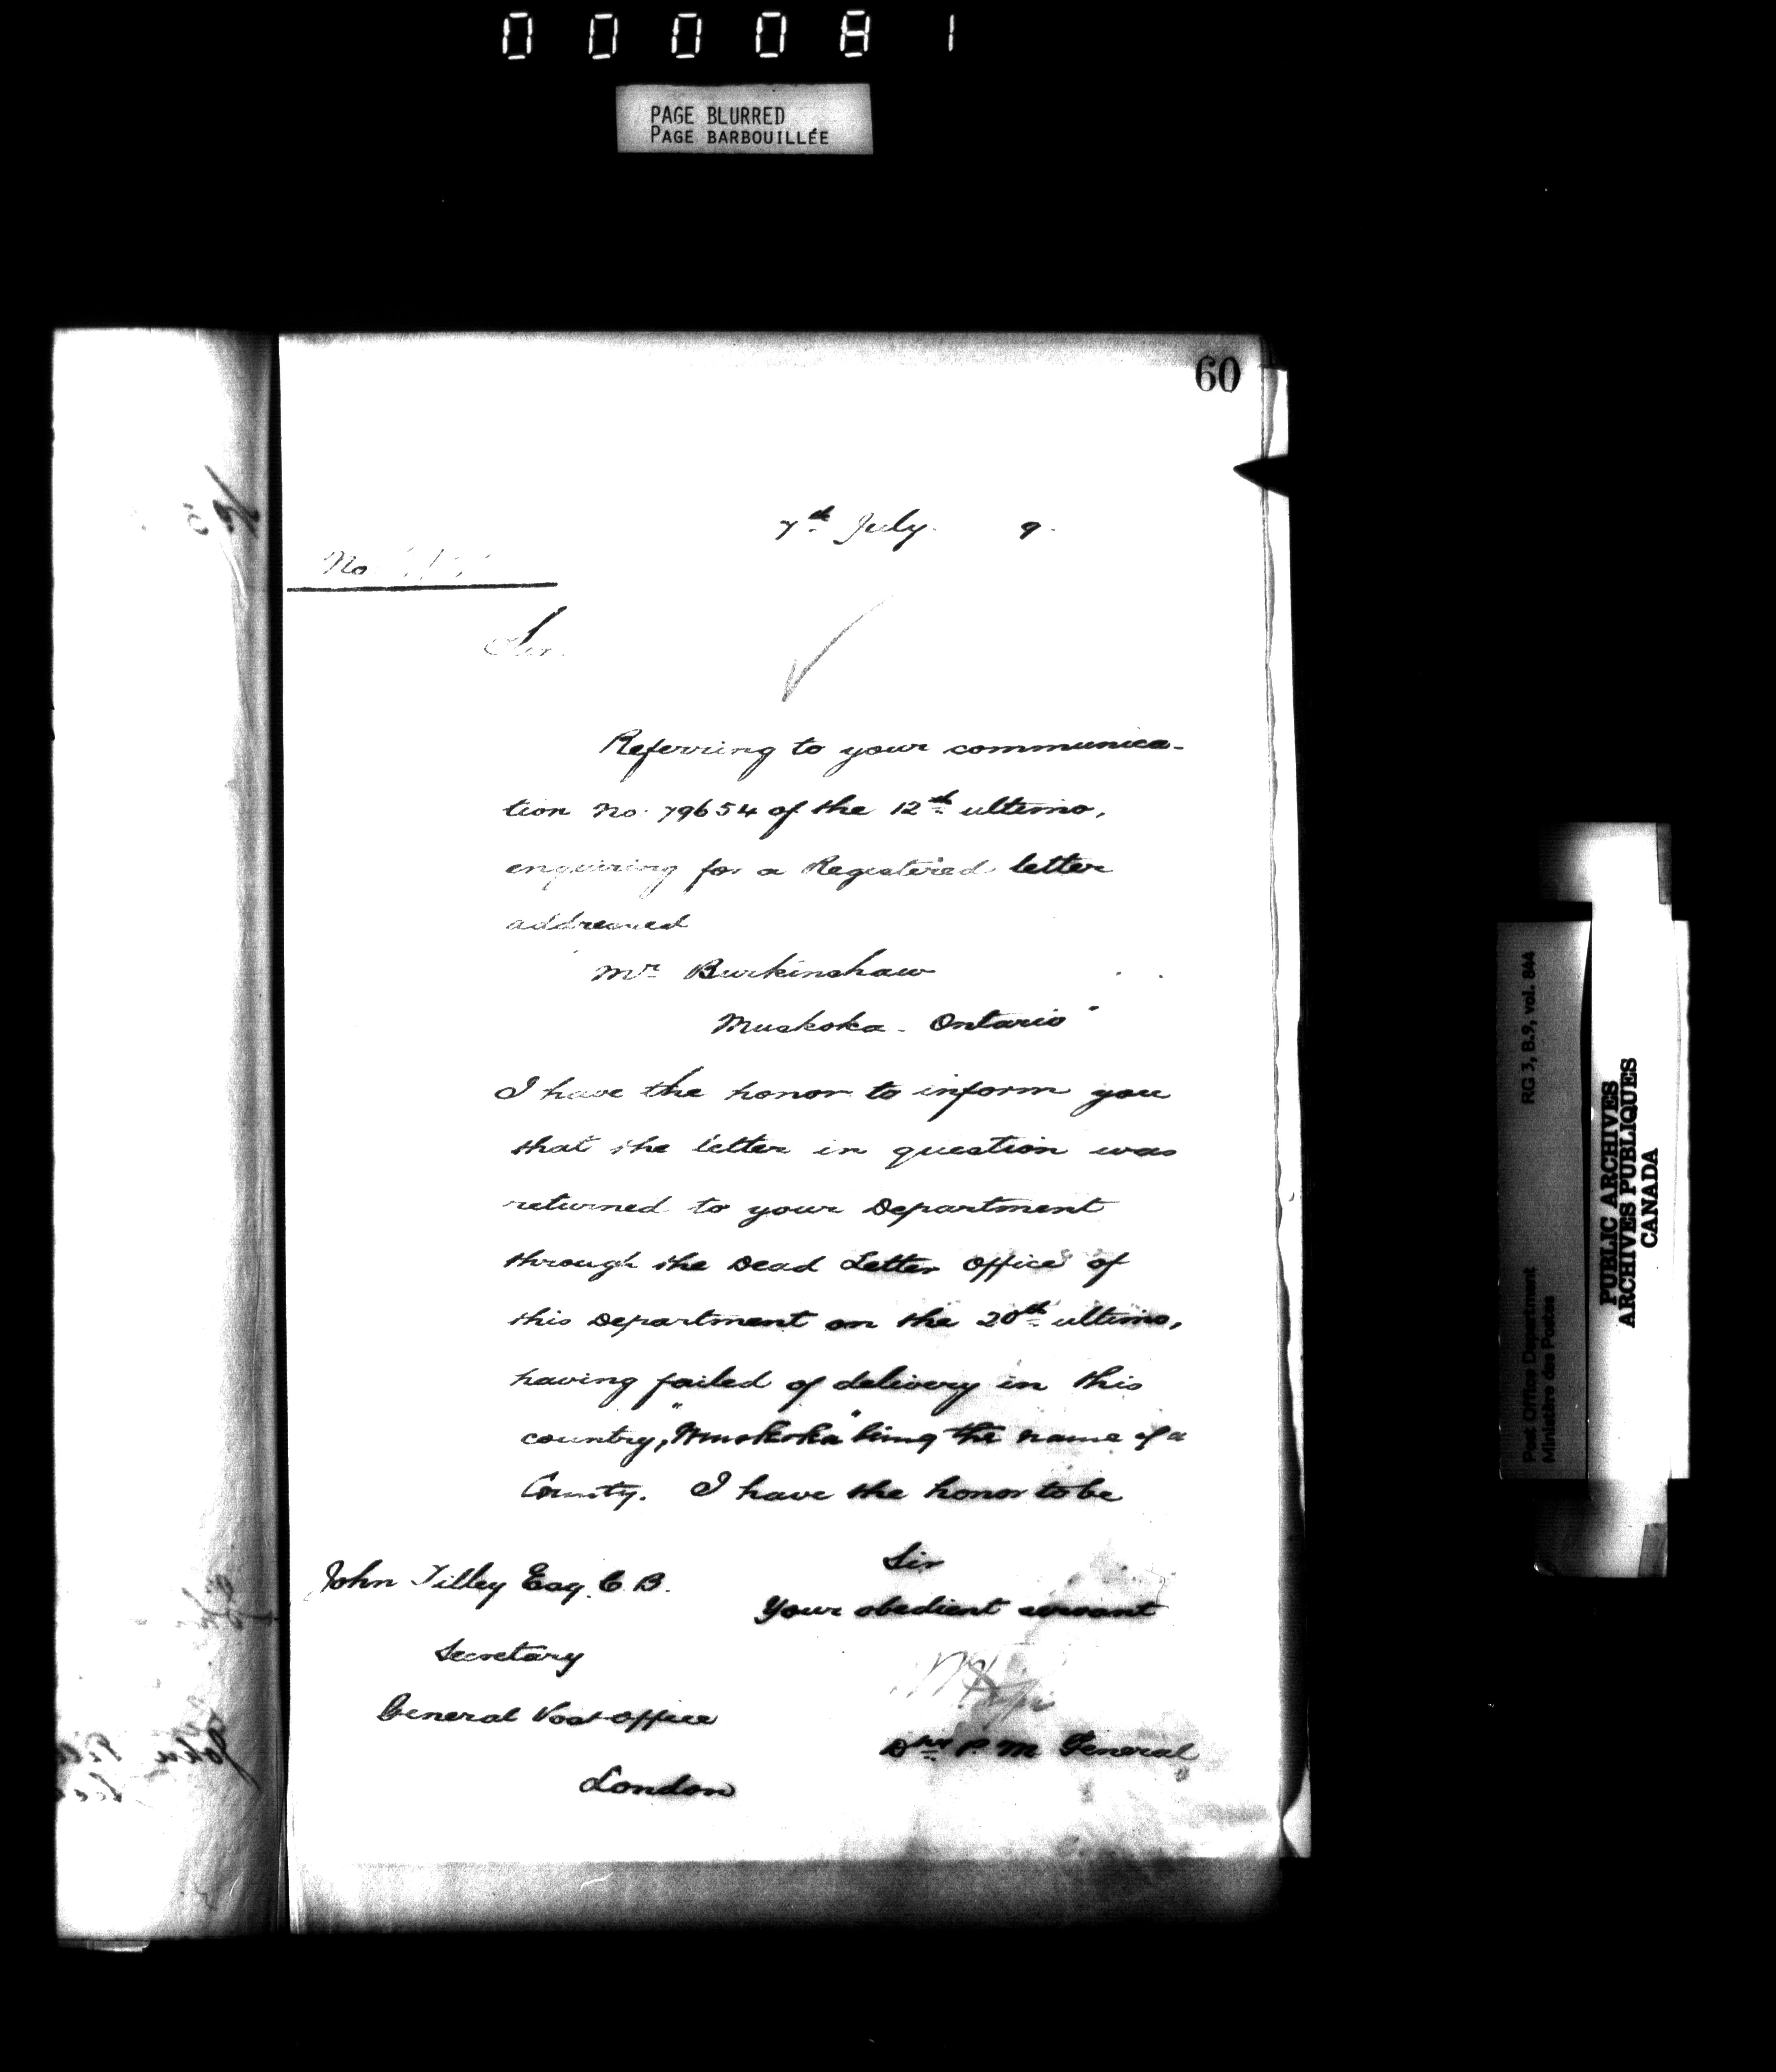 000081
PAGE BLURRED
PAGE BARBOUILLÉE
60
7th July. 9.
No
Sir.
Referring to your communica-
tion No. 79654 of the 12th ultimo,
enquiring for a Registered letter
addressed
Mr Burkinshaw
Muskoka - Ontario"
I have the honor to inform you
that the letter in question was
returned to your Department
through the Dead Letter Office of
this Department on the 20th ultimo,
having failed of delivery in this
country, "Muskoka" being the name of a
County. I have the honor to be
Sir
Your obedient servant
John Tilley Esq. C.B.
Secretary
General Post Office
London
P. M. General
RG 3, B.9, vol. 844
Post Office Department
Ministère des Postes
PUBLIC ARCHIVES
ARCHIVES PUBLIQUES
CANADA